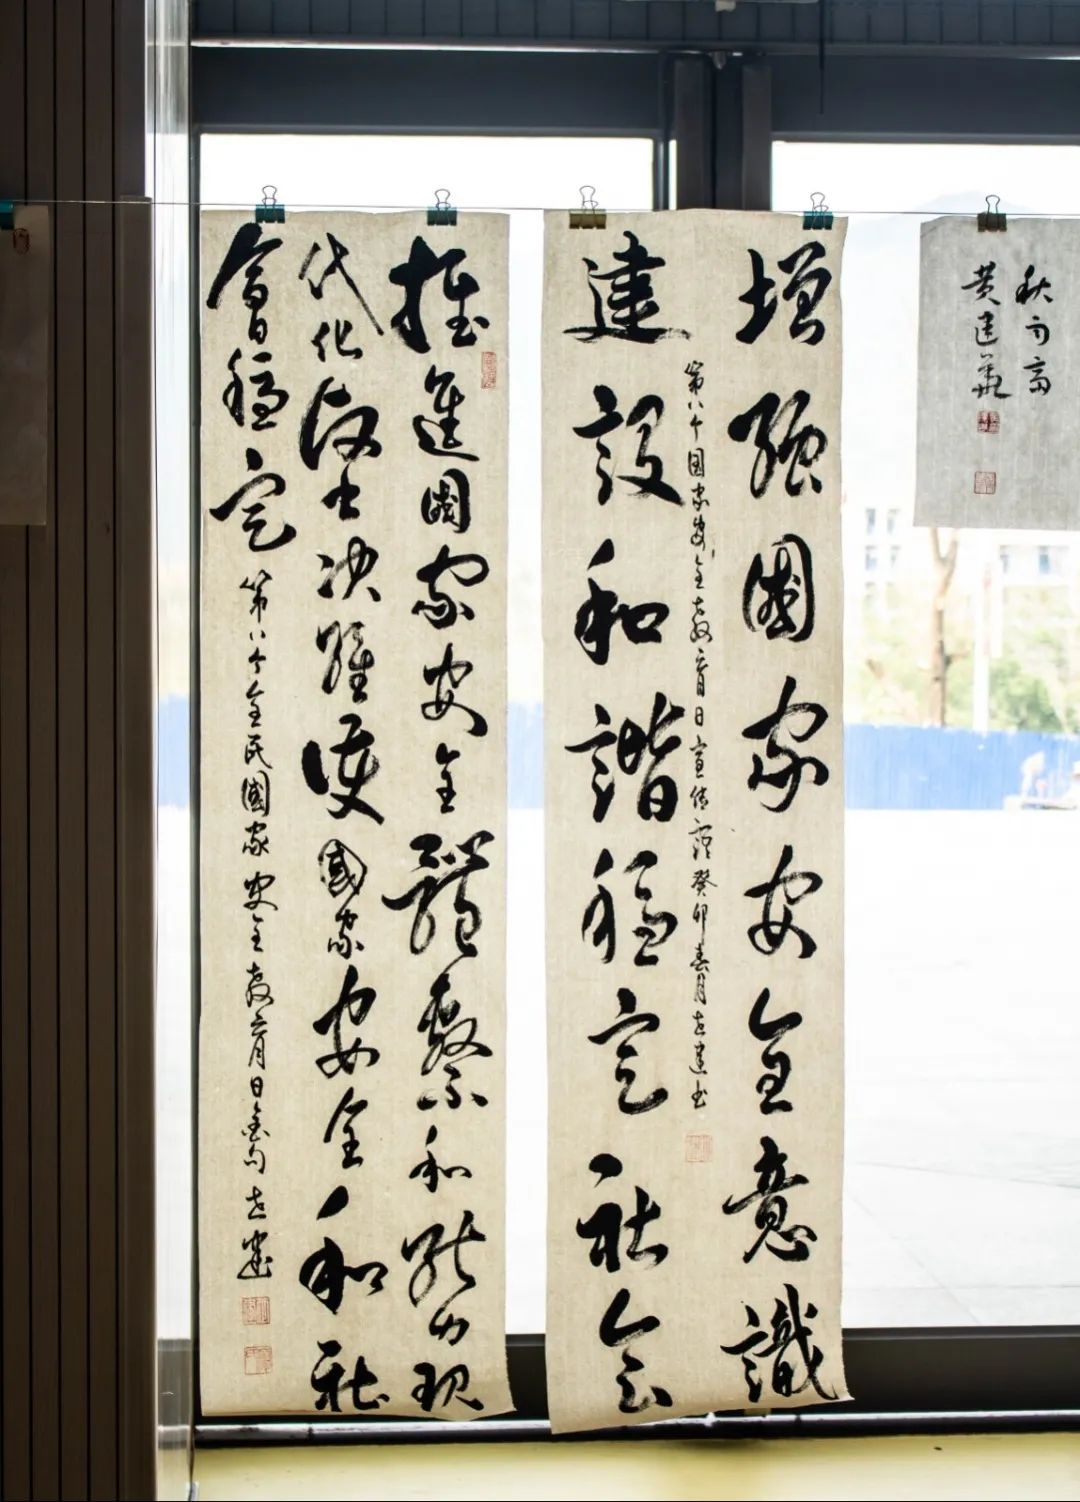 秋可斋
黄建华
增强國家安全意識
建設和谐穩定社会
第八个国家安全教育日宣传语癸卯春月志建书
推進國家安全體系和能力现
代化坚决维護國家安全和社
會穩定
第八个全民國家安全教育日金句志建